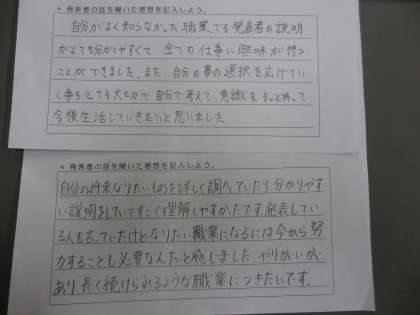 * 発表者の話を聞いた感想を記入しよう。
自分がよく知らなかった職業でも発表者の説明
がとても分かりやすくて 全ての仕事に興味が持つ
ことができました。また、自分の夢の選択を広げてい
く事もとても大切で自分で考えて、意識をもっと持って
今後生活していきたいと思いました
* 発表者の話を聞いた感想を記入しよう。
自分の将来なりたいものを詳しく調べていたり、分かりやす
い説明をしていてすごく理解しやすかったです。発表してい
る人も言っていたけどなりたい職業になるには今から努
力することも必要なんだと感じました。やりがいが
あり、長く続けられるような職業につきたいです。